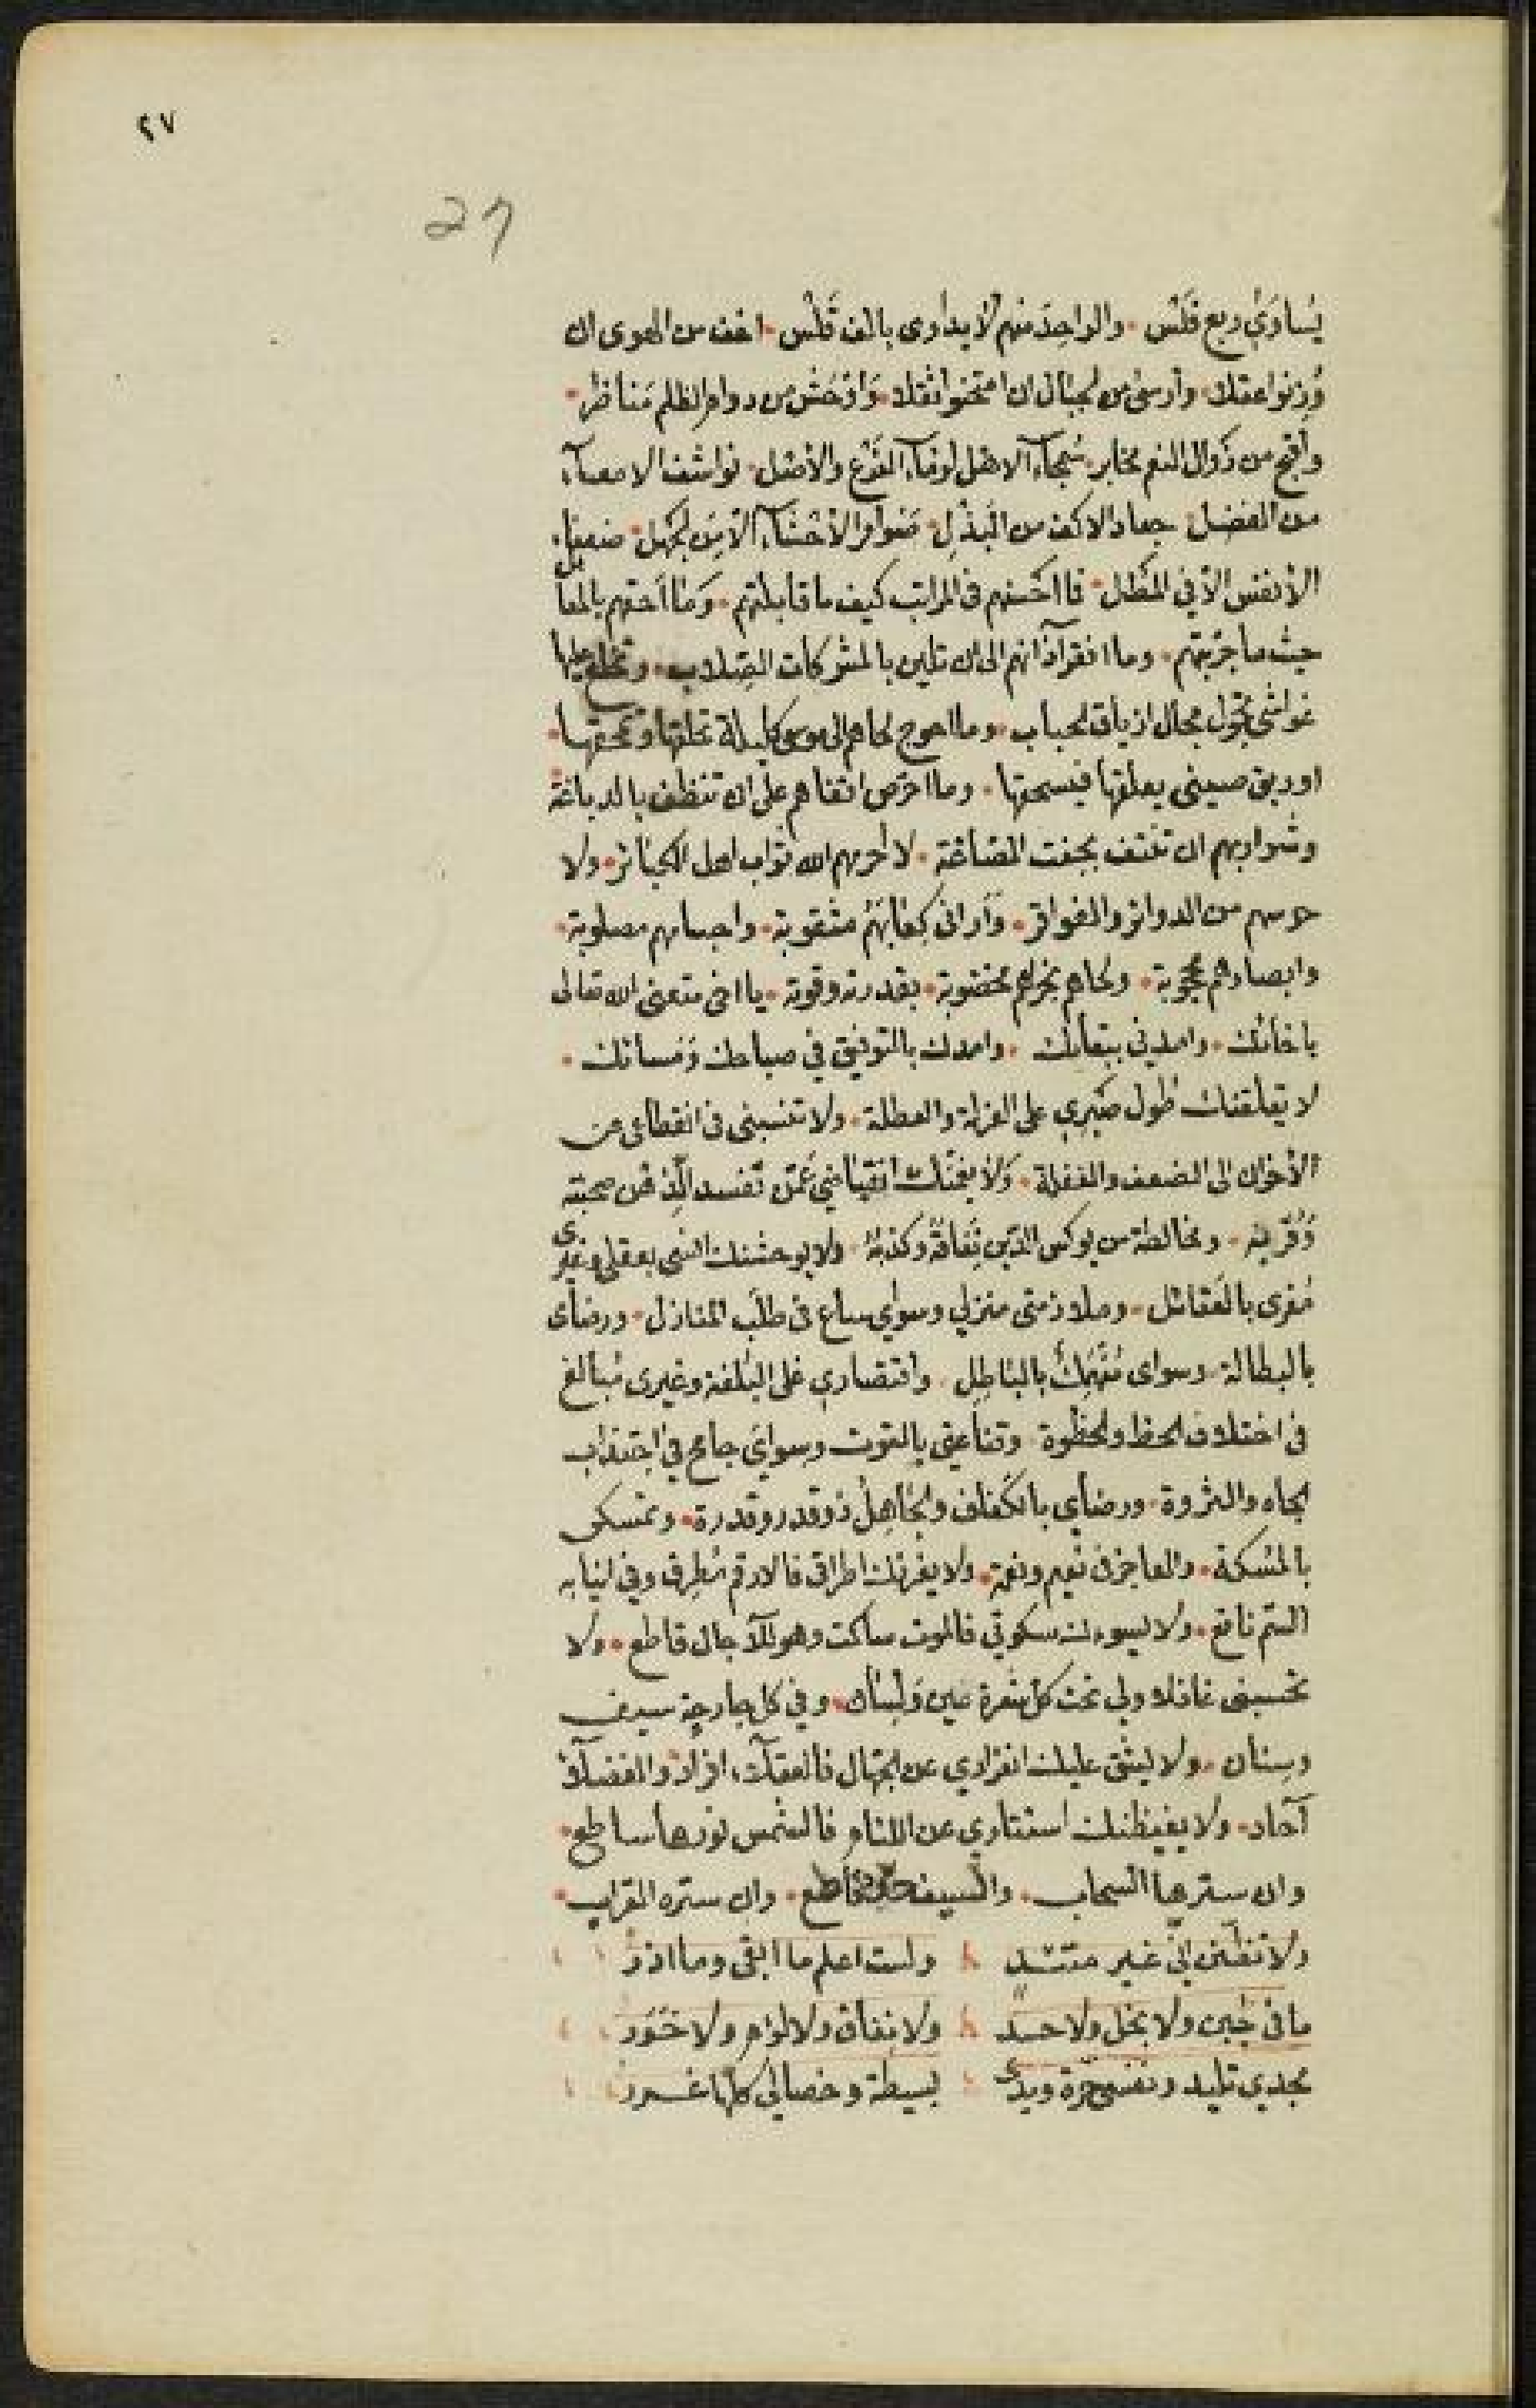 ٢٧
27
يُساوي ربع فَلْس والواحِدَ منهم لا يداوى بالف قَلْس اخف من الهوى ان
وُزِنوا عقلا وأرسى من الجبال ان امتحنوا ثقلا وَاوْحَش من دوام الظلم مَناظر
وأقبح من زوال النعم مخابر آلاهل لوفاء الفَرْع والأصْل نواشف الامعاء
من الفضل جعاد الاكف من البَذْلِ ضَوامر الأحْشاء الّا مِن الجَهل ضعفاء
الأنفس الّا في المَطْل فما اخسّهم في المراتب كيف ما قابلتهم وَمَا أحقهم بالمعا
حيث ما جرّبتهم وما افقر آذانهم الى ان تلين بالمشركات الصِلاب وتخلع عليها
غواشي تحول مجال ازياق الجباب وما احوج لحاهم الى موسى كليلة تحلقها وتمحقها
او ريق صيبنى يعلقها فيسحقها وما احرص اقفاهم على ان تنظف بالدباغة
وشواربهم ان تنتف بجفت الصّاغة لا احرمهم الله ثواب اهل الكبائر ولا
حرسهم من الدوائر والفواقر وَأراني كِعَابَهُم مثقوبة واجسامهم مصلوبة
وابصارهم محجوبة ولحاهم بخراهم مخضوبة بقدرته وقوته يا اخى متعنى الله تعالى
باخائك وامدنى ببقائك وامدك بالتوفيق في صباحك ومسائك
لا يقلقنك طُول صَبْري على العزلة والعطلة ولا تنسبنى فى انقطاعى عن
الأخوان الى الضعف والغفلة وَلَا يغمّنّك انقباضي عَمّن تفسد الذِهن صحبته
وَقُربه ومخالطة من يوكس الدّين نِفَاقُهُ وكَذبُه ولا يوحشنك انسى بعقلى وغيرى
مُغرى بالعَقائل وملازمتى منزلي وسواي ساع فى طلَب المنازل ورضاى
بالبطالة وسواى مُنْهَمِكٌ بالباطِل واقتصاري على البُلغة وغيرى مُبالغ
فى اختلاف الحظ والحظوة وقناعتى بالقوت وسوايَ جامح في اجتذاب
الجاه والثروة ورضاي بالكَفاف والجَاهِلُ ذو قدر وقدرة وتمسكى
بالمَسْكنة والعاجز فى نعيم ونعمة ولا يغرنك اطراقى فالارقم مُطرِق وفي انيابه
السّم ناقع ولا يسوءنك سكوتي فالموت ساكت وهو للآجال قاطع ولا
تحسبنى غافلا ولي تحت كل شعرة عين وَلِسَان وفي كل جارحة سيف
وسِنان ولا يشق عليك انفرادي عن الجهال فالعقلاء افراد والفضلاء
آحاد ولا يغيظنك استتاري عن اللئام فالشمس نورها ساطع
وان سترها السحاب والسيف قاطع وان ستره القراب
ولا تظنّن انّي غير متئد ولست اعلم ما ابقى وما اذر
ما فى جُبن ولا بخل ولا حسد ولا نفاق ولا لؤم ولا خَوَر
مجدي تليد ونفسى حرّة ويدى بسيطة وخصالي كلّها غرر